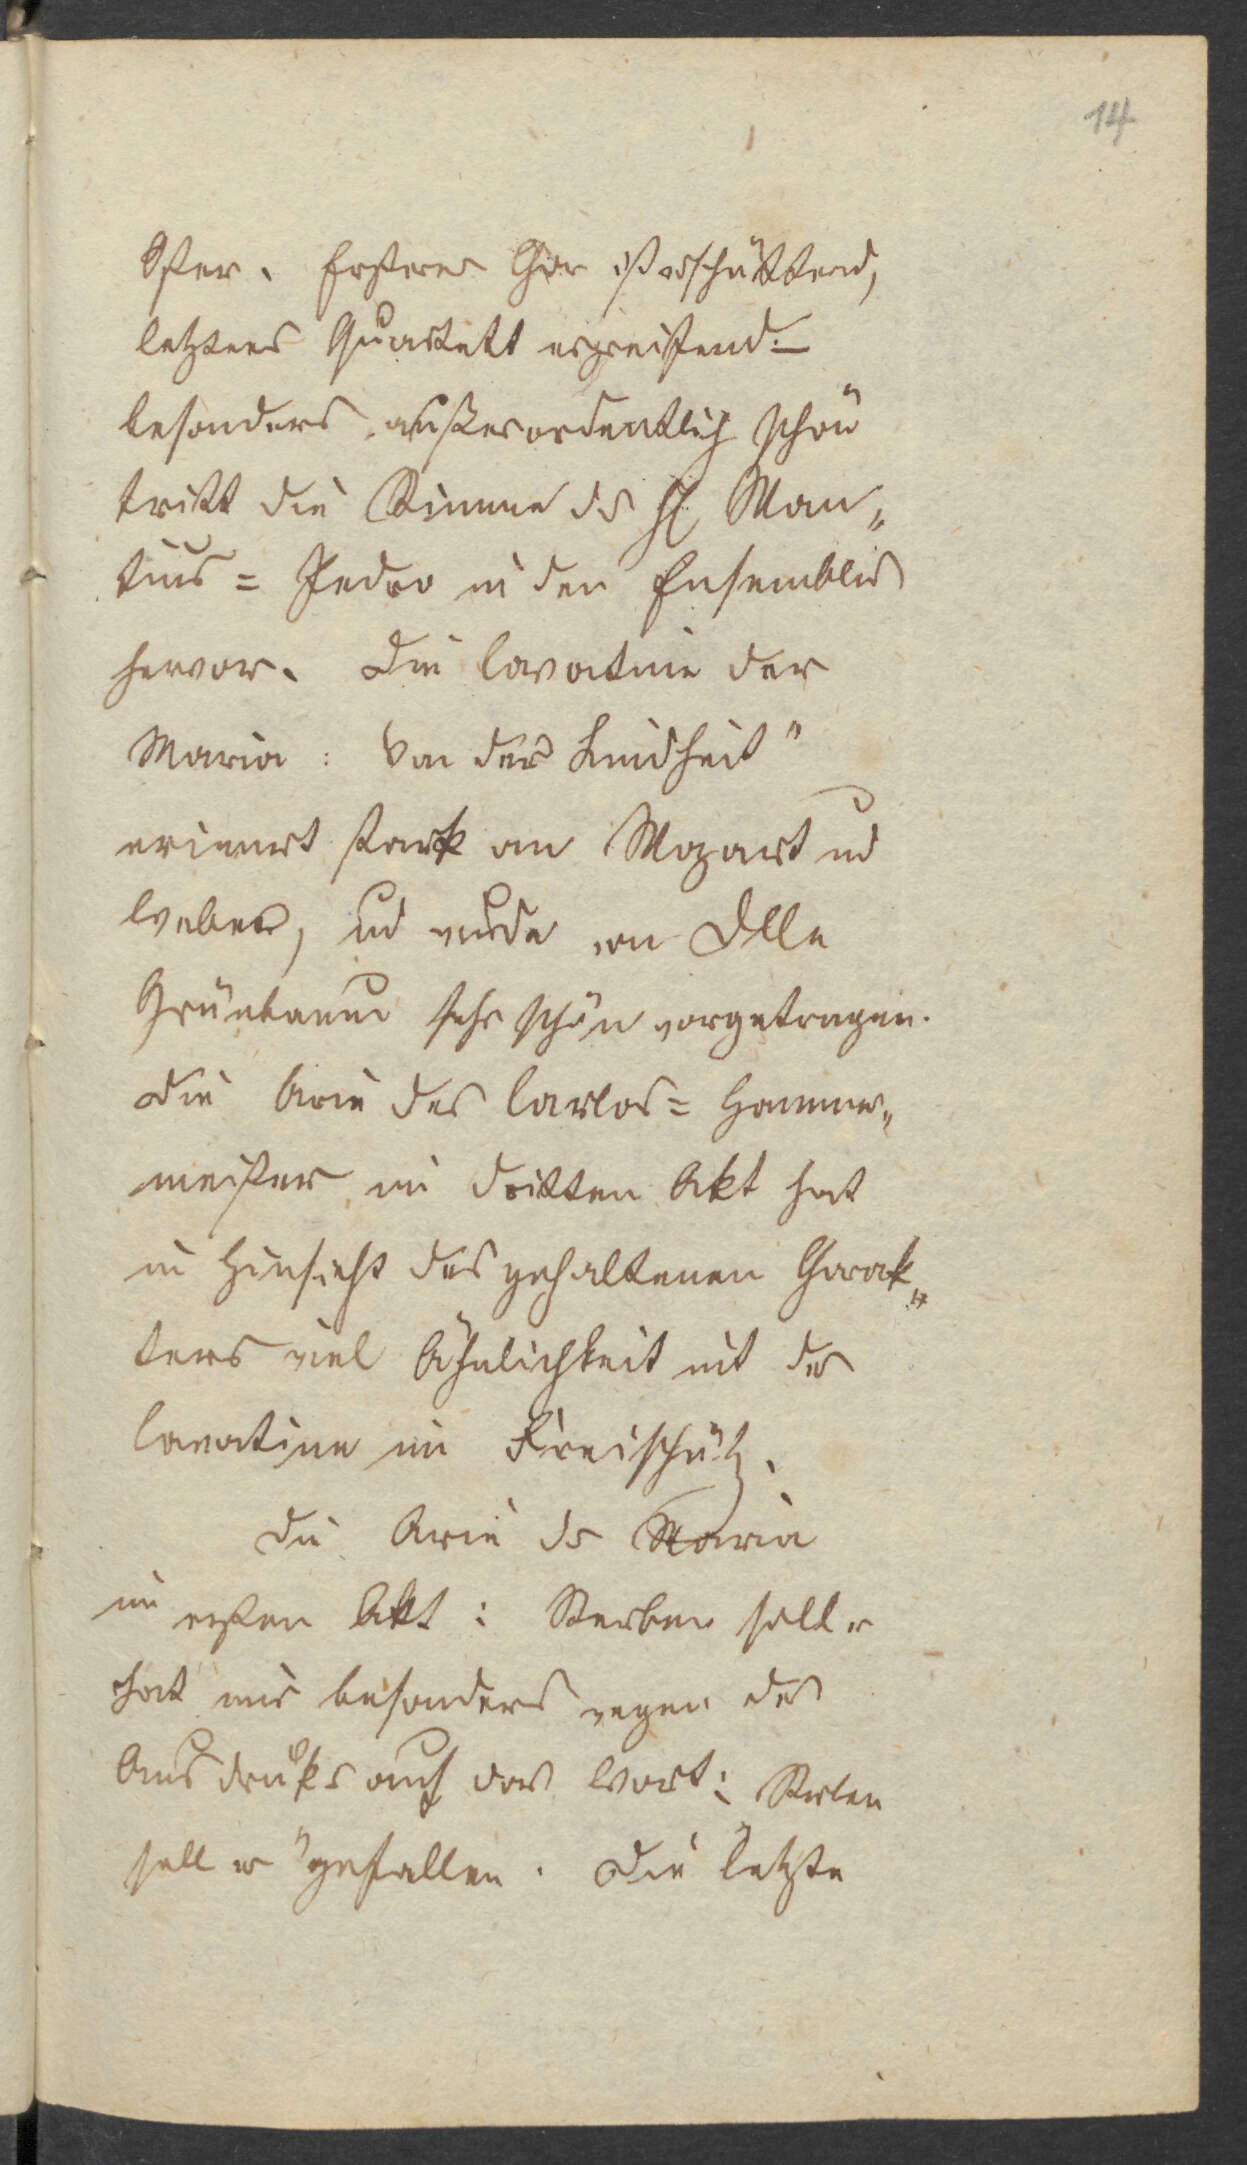 14
Oper. Ersterer Chor ist erschütternd,
letzteres Quartett ergreifend. –
besonders außerordentlich schön
tritt die Stimme ds H Man„
tius = Pedro in den Ensembles
hervor. Die Cavatine der
Maria: Von der Kindheit"
erinnert stark an Mozart und
Weber, und wurde von Dlle
Grünbaum sehr schön vorgetragen.
Die Arie des Carlos = Hammer„
meister im dritten Akt hat
in Hinsicht des gehaltenen Charak„
ters viel Ähnlichkeit mit der
Cavatine im Freischütz.
Die Arie dr Maria
im ersten Akt: Sterben soll er
hat mir besonders wegen des
Ausdruks auf das Wort: Sterben
soll er" gefallen. Die letzte